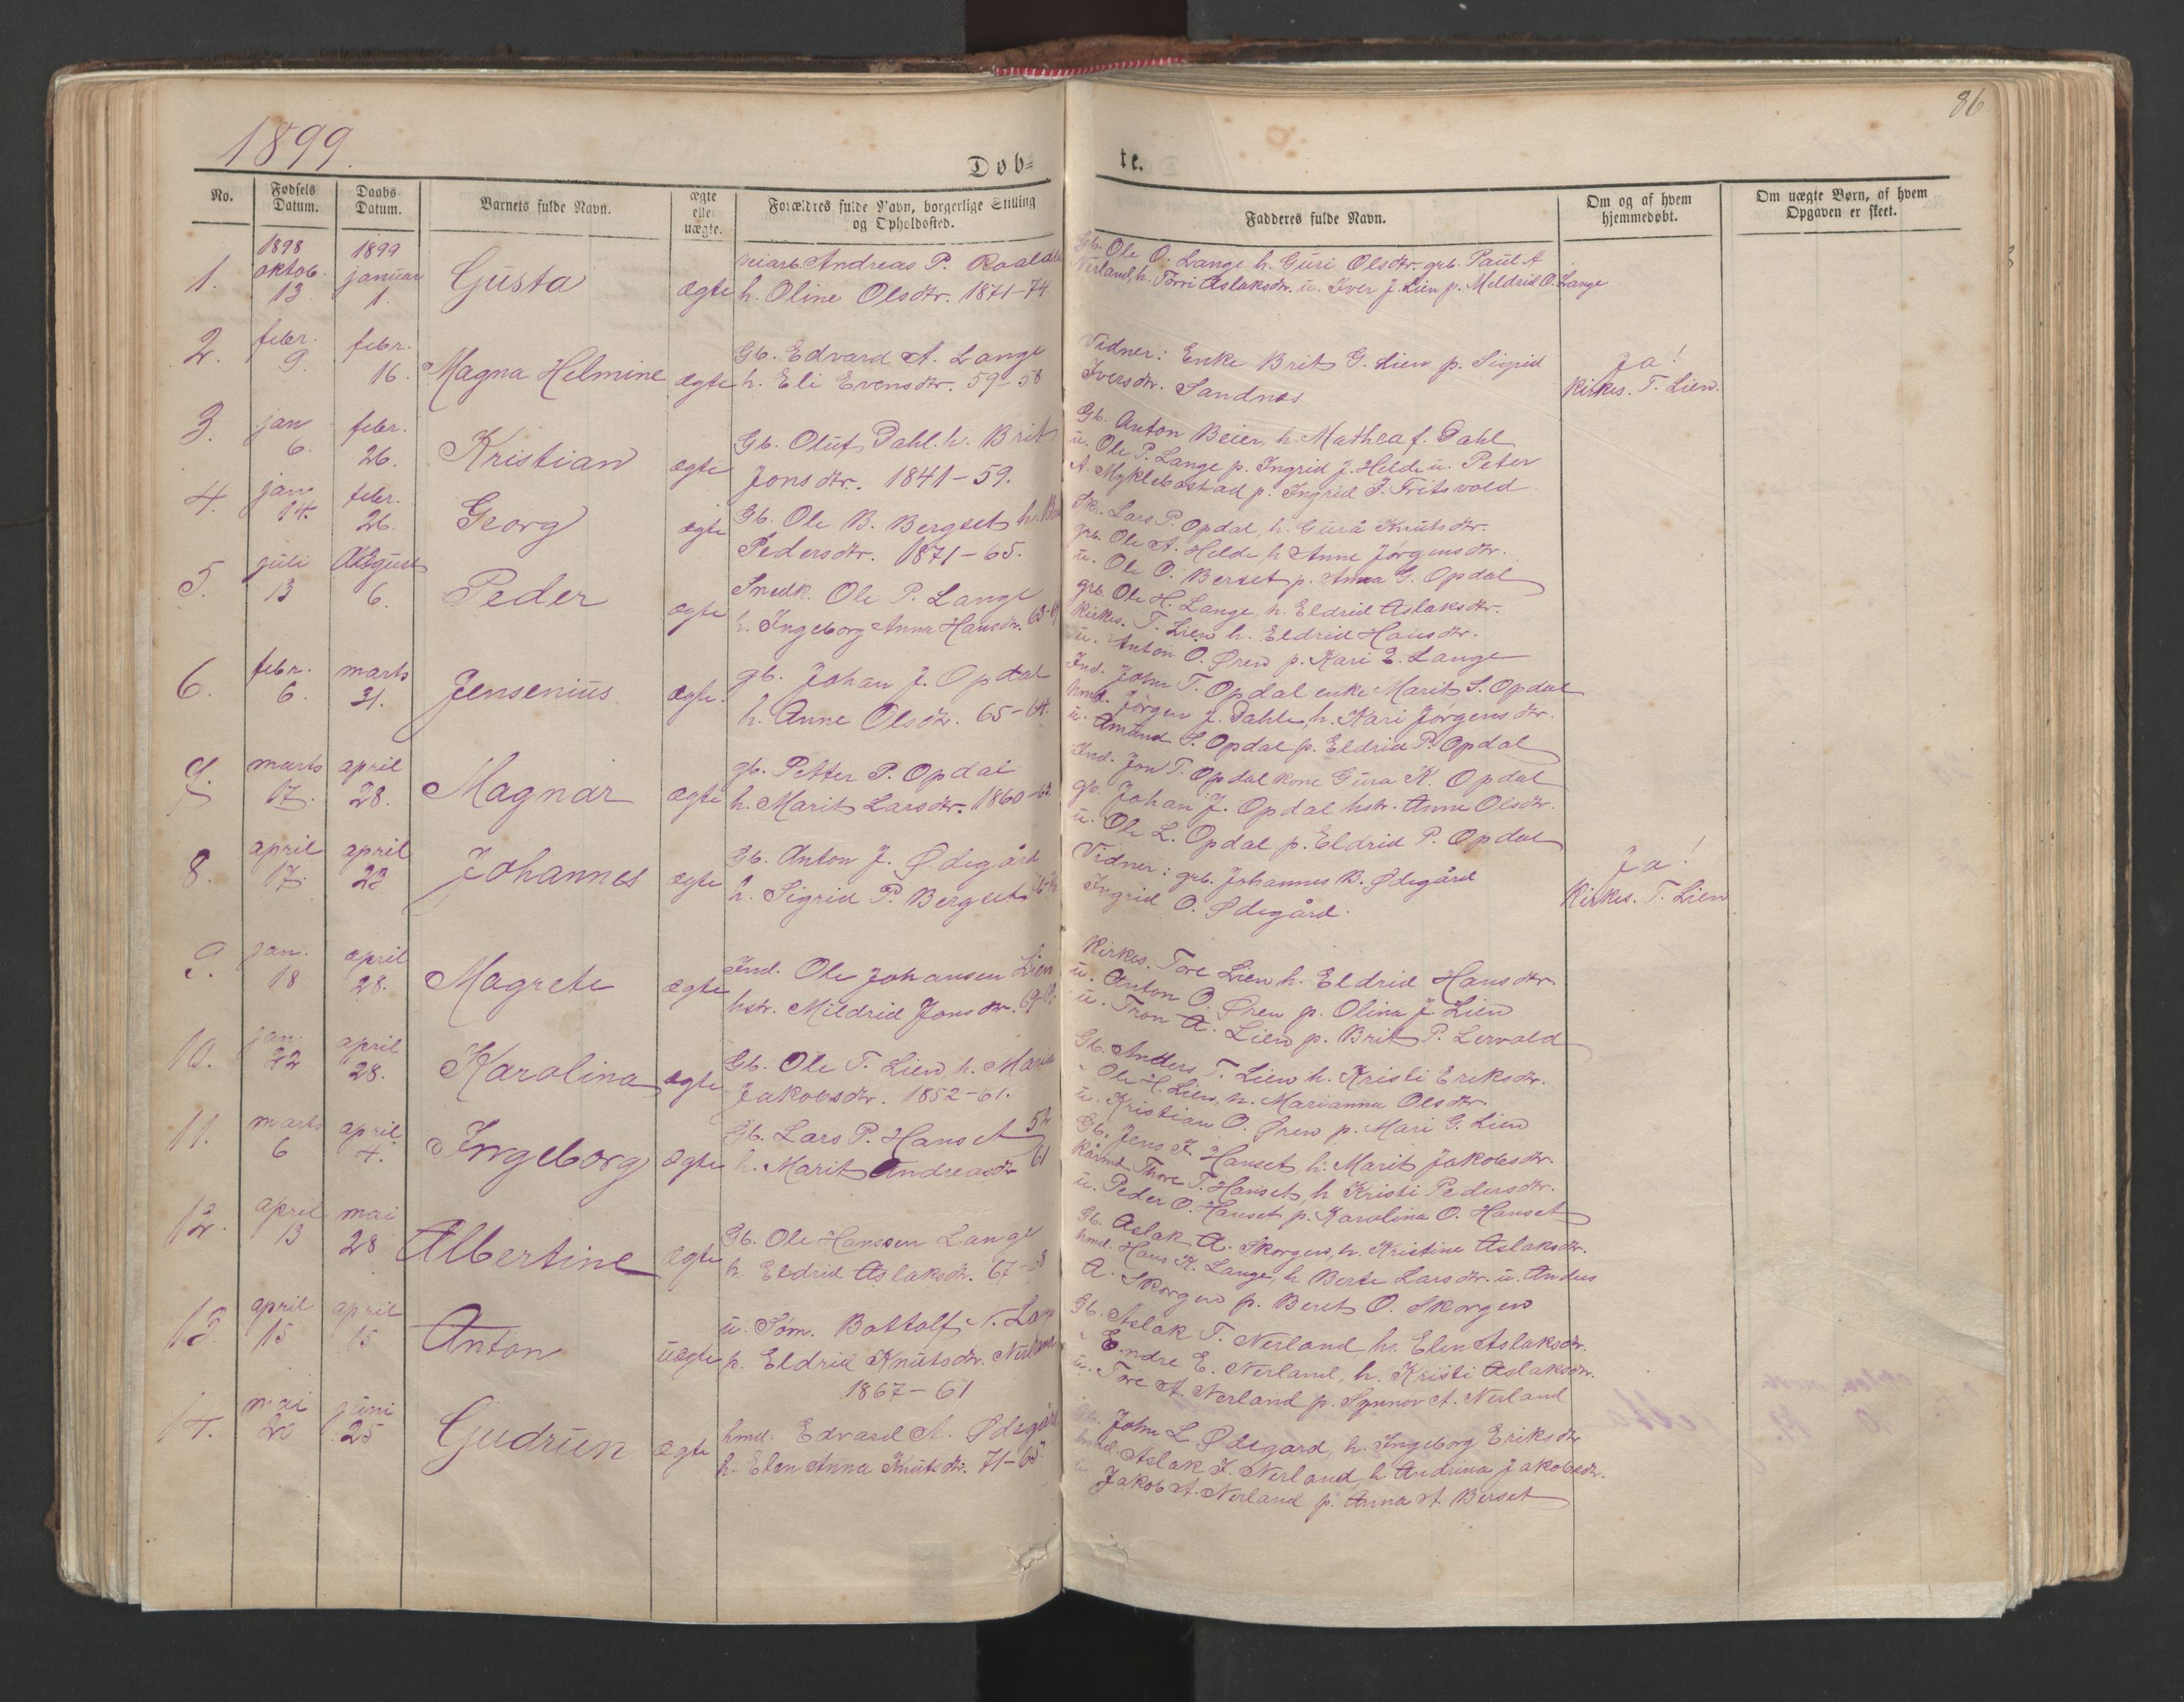 86
1899.
Døb-
te.
No.
Fødsels Datum.
Daabs Datum.
Barnets fulde Navn.
ægte eller uægte.
Forældres fulde Navn, borgerlige Stilling og Opholdssted.
Fadderes fulde Navn.
Om og af hvem hjemmedøbt.
Om uægte Børn, af hvem Opgaven er skeet.
1. 1898 oktob. 13 1899 januar 1. Gusta ægte
veiarb. Andreas P.
h. Oline Olsdtr. 1871-74
Gb. Ole O. Lange h. Guri Olsdtr. grb. Paul A
Nerland, h. Torri Aslaksdtr. u. Iver J. Lien p. Meldrid O. Lange
2. febr. 9. febr. 16. Magna Helmine ægte
Gb. Edvard A. Lange
h. Eli Evensdtr. 59-58
Vidner: Enke Brit G. Lien p. Sigrid
Iversdtr. Sandnes
Ja!
Kirkes. T. Lien.
3. jan 6. febr. 26. Kristian ægte
Gb. Oluf Dahl. h. Brit
Jonsdtr. 1841-59.
Gb. Anton Beier, h. Mathea f. Dahl
u. Ole P. Lange p. Ingrid J. Helde u. Peter
A. Myklebostad p. Ingrid J. Fritsvold
4. jan 14. febr. 26. Georg ægte
Gb. Ole B. Bergset h.
Pedersdtr. 1871-65.
Skr. Lars P. Opdal, h. Gurå Knutsdtr.
grb. Ole A. Helde h Anne Jørgensdtr.
u. Ole O. Berset p. Anna G. Opdal
5. juli 13 August 6. Peder ægte
Snedk. Ole P. Lange
h. Ingeborg Anna Hansdtr.
grb. Ole H. Lange, h. Eldrid Aslaksdtr.
Kirkes. T. Lien h. Eldrid Hansdtr.
u. Anton O. Øren p. Kari E. Lange
6. febr. 6. marts 31. Jensenius ægte.
gb. Johan J. Opdal
h. Anne Olsdtr. 65-64.
Ind. John T. Opdal enke Marit S. Opdal
hmd. Jørgen J. Dahle, h. Kari Jørgensdtr.
u. Amund S. Opdal p. Eldrid P. Opdal
7. marts 17. april 28. Magnar ægte
gb. Petter P. Opdal
h. Marit Larsdtr. 1860-62.
Ind. Jon T. Opdal kone Gura K. Opdal
gb. Johan J. Opdal hstr. Anne Olsdtr.
u. Ole L. Opdal p. Eldrid P. Opdal
8. april 17. april 23 Johannes ægte
Gb. Anton J. Ødegård
h. Sigrid P. Bergset
Vidner: grb. Johannes B. Ødegård
Ingrid O. Ødegård.
Ja!
Kirkes. T. Lien
9. jan. 18 april 28. Magrete ægte
Ind. Ole Johansen Lien
hstr. Mildrid Jonsdtr.
Kirkes. Tore Lien h. Eldrid Hansdtr.
u. Anton O. Øren p. Olina J. Lien
u. Tron A. Lien p. Brit P. Lervold
10. jan. 22 april 28. Karolina ægte
Gb. Ole T. Lien, h. Marie
Jakobsdtr. 1852-61.
Gb. Anders T. Lien h. Kristi Eriksdtr.
" Ole H. Lien, h. Marianna Olsdtr.
u. Kristian O. Øren p. Mari G. Lien
11. marts 6 april 4. Ingeborg ægte
Gb. Lars P. Hanset 52
h. Marit Andreasdtr 61
Gb. Jens J. Hanset, h. Marit Jakobsdtr.
Kårmd Thore T. Hanset, h Kristi Pedersdtr.
u. Peder O. Hanset p. Karolina O. Hanset
12. april 13 mai 28 Albertine ægte
Gb. Ole Hanssen Lange
h. Eldrid Aslaksdtr. 67-68
Gb. Aslak A. Skorgen, h. Kristine Aslaksdtr.
hmd. Hans K. Lange, h. Berte Larsdtr. u. Anders
A. Skorgen p. Beret O. Skorgen
13. april 15 april 15 Anton uægte
u. Søm. Bottolf
p. Eldrid Knutsdtr. Nerland
1867-61
Gb. Aslak T. Nerland, h. Elen Aslaksdtr.
" Endre E. Nerland, h. Kristi Aslaksdtr.
u. Tore A. Nerland p. Synnov A. Nerland
14. mai juni 25 Gudrun ægte
hmd. Edvard A. Ødegård
h. Elen Anna Knutsdtr. 71-65.
John L Ødegard, h. Ingeborg Eriksdtr
hmd. Aslak J. Nerland, h. Andrina Jakobsdtr.
Jakob A. Nerland p. Anna A. Berset